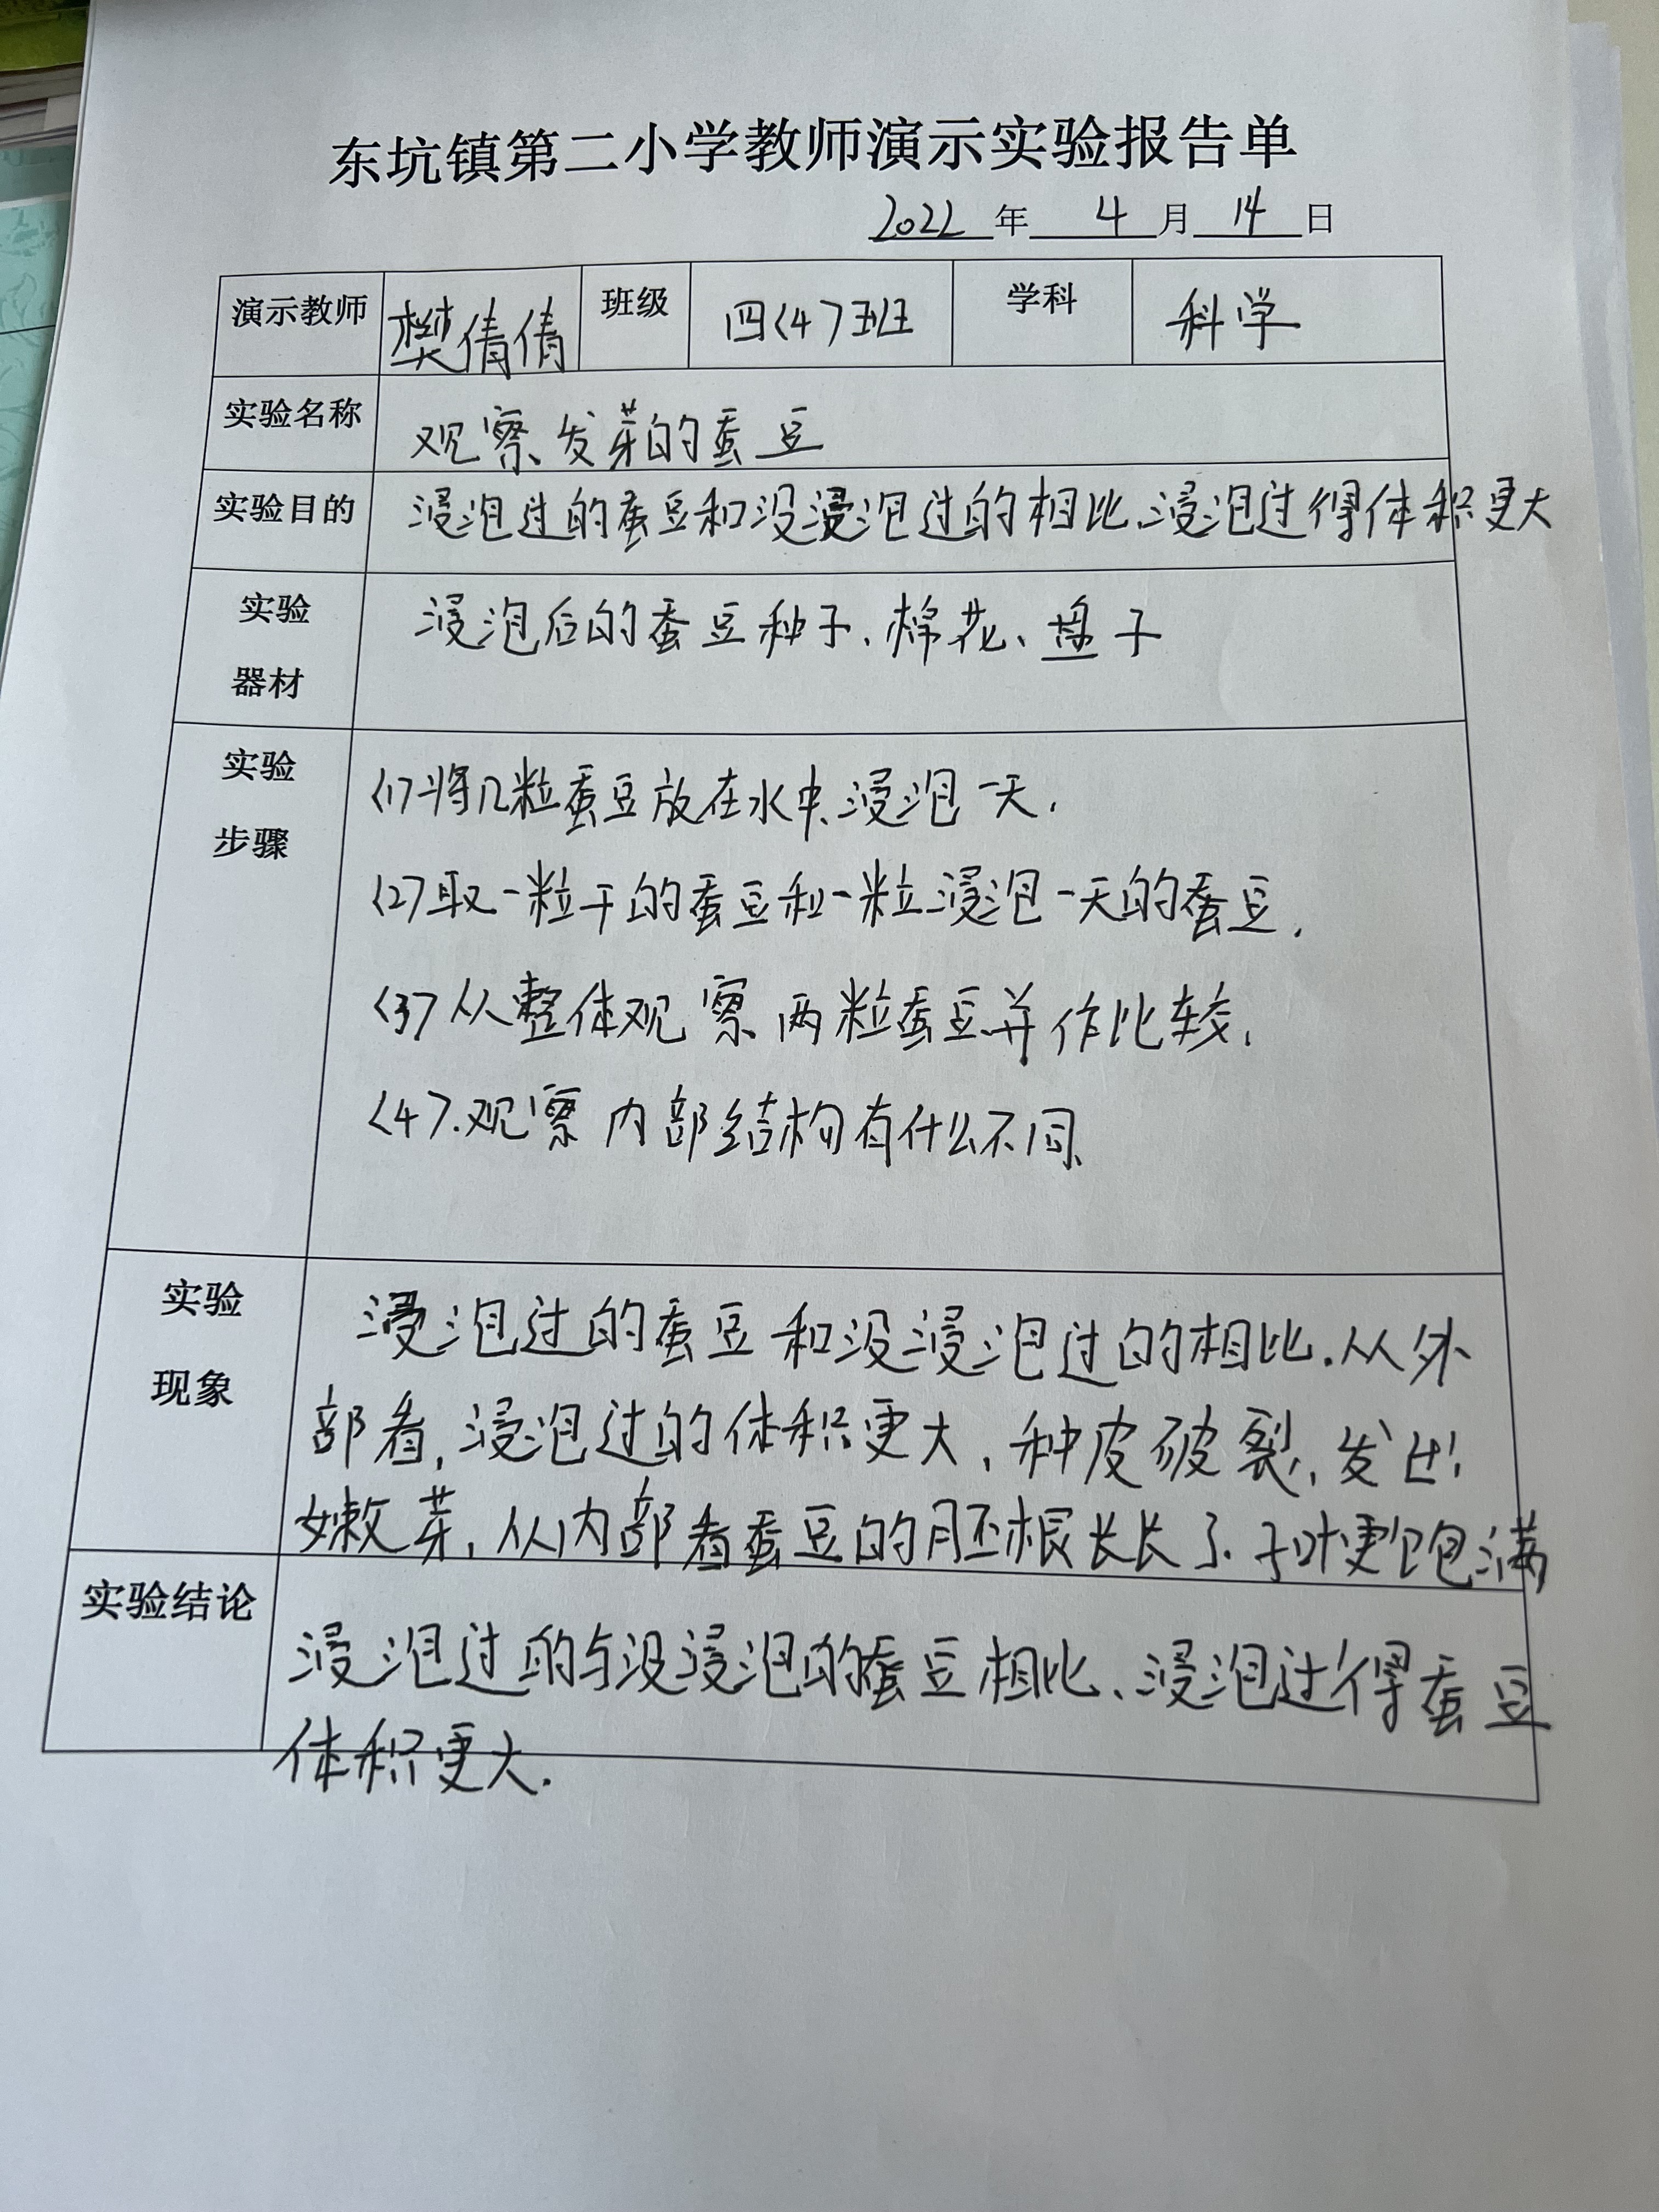 东坑镇第二小学教师演示实验报告单
2022年4月14日
演示教师 樊倩倩 班级 四(4)班 学科 科学
实验名称 观察发芽的蚕豆
实验目的 浸泡过的蚕豆和没浸泡过的相比、浸泡过得体积更大
实验 浸泡后的蚕豆种子、棉花、盘子
器材
实验 (1)将几粒蚕豆放在水中浸泡一天.
步骤
(2)取一粒干的蚕豆和一粒浸泡一天的蚕豆.
(3)从整体观察两粒蚕豆并作比较.
(4).观察内部结构有什么不同
实验 浸泡过的蚕豆和没浸泡过的相比.从外
现象 部看,浸泡过的体积更大,种皮破裂,发出
嫩芽,从内部看蚕豆的胚根长长了.子叶更饱满
实验结论 浸泡过的与没浸泡的蚕豆相比、浸泡过得蚕豆
体积更大.